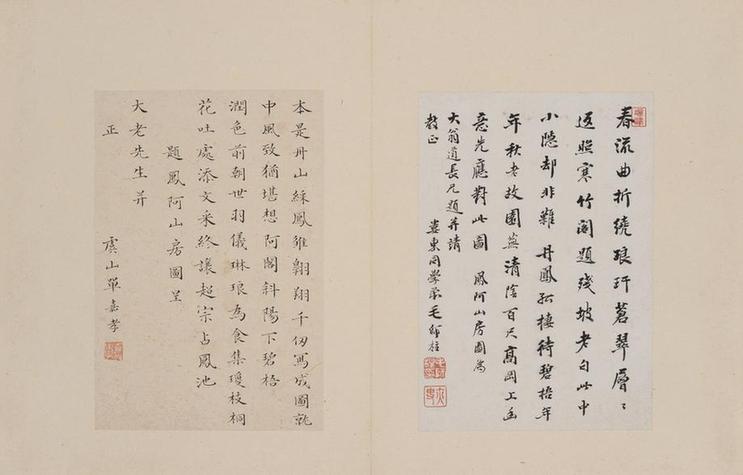 春流曲折繞琅玕蒼翠層〻
返照寒竹閣題殘坡老句此中
小隱却非難丹鳳孤棲待碧梧年
年秋老故園蕪清陰百尺高岡上幽
意先應對此圖 鳳阿山房圖為
大翁道長兄題并請
教正
婁東同學弟毛師柱
本是丹山綵鳳雛翱翔千仞寫成圖就
中風致猶堪想阿閣斜陽下碧梧
潤色前朝世羽儀琳琅為食集瓊枝桐
花吐處添文采終讓超宗占鳳池
題鳳阿山房圖呈
大老先生并
正
虞山單嘉孝